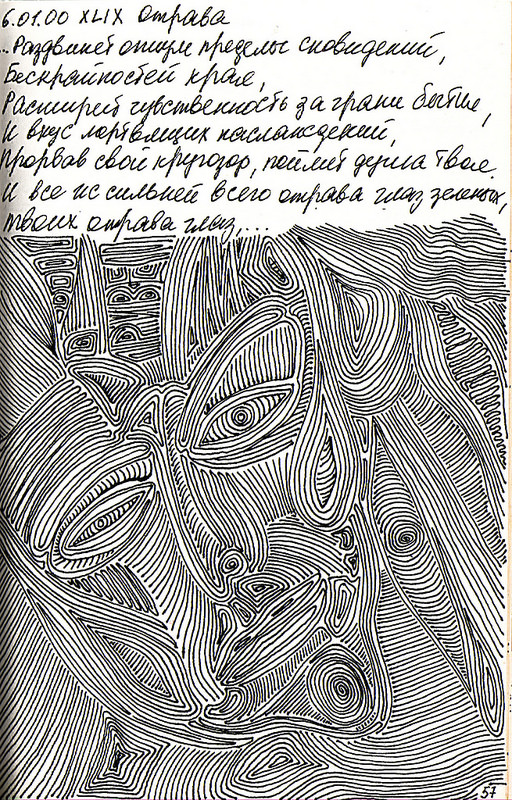 6.01.00 XLIX отрава
..Раздвинет опиум пределы сновидений,
Бескрайностей края,
Расширит чувственность за грани бытия,
И вкус мертвящих наслаждений,
Прорвав свой кругозор, поймёт душа твоя.
И все ж сильней всего отрава глаз зеленых,
твоих отрава глаз,...
57